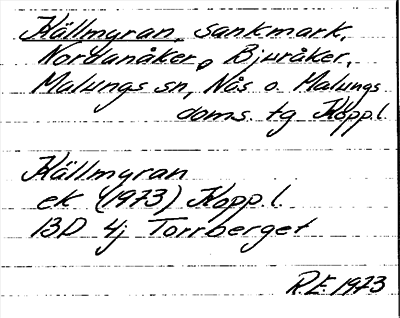 Källmyran, sankmark,
Nordanåker, Bjuråker,
Malungs sn, Nås o. Malungs
doms. tg Kopp.l.
Källmyran
ek (1973) Kopp.l.
13D 4j Torrberget
R.E. 1973